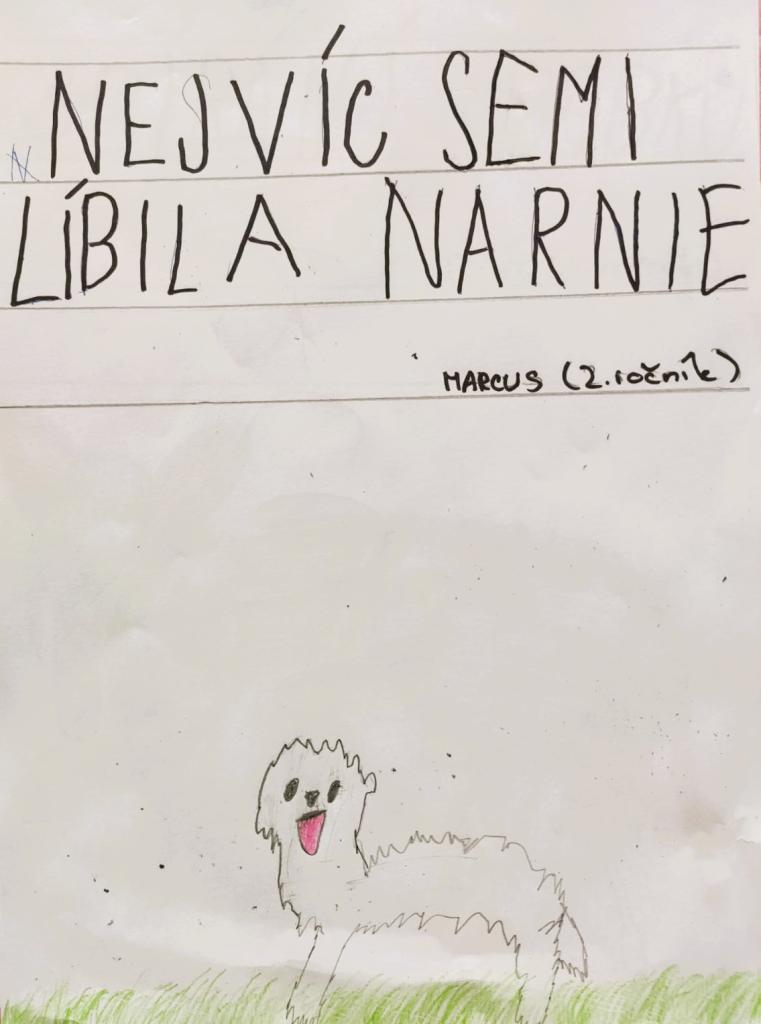 NEJVÍC SEMI
LÍBILA NARNIE
MARCUS (2. ročník)